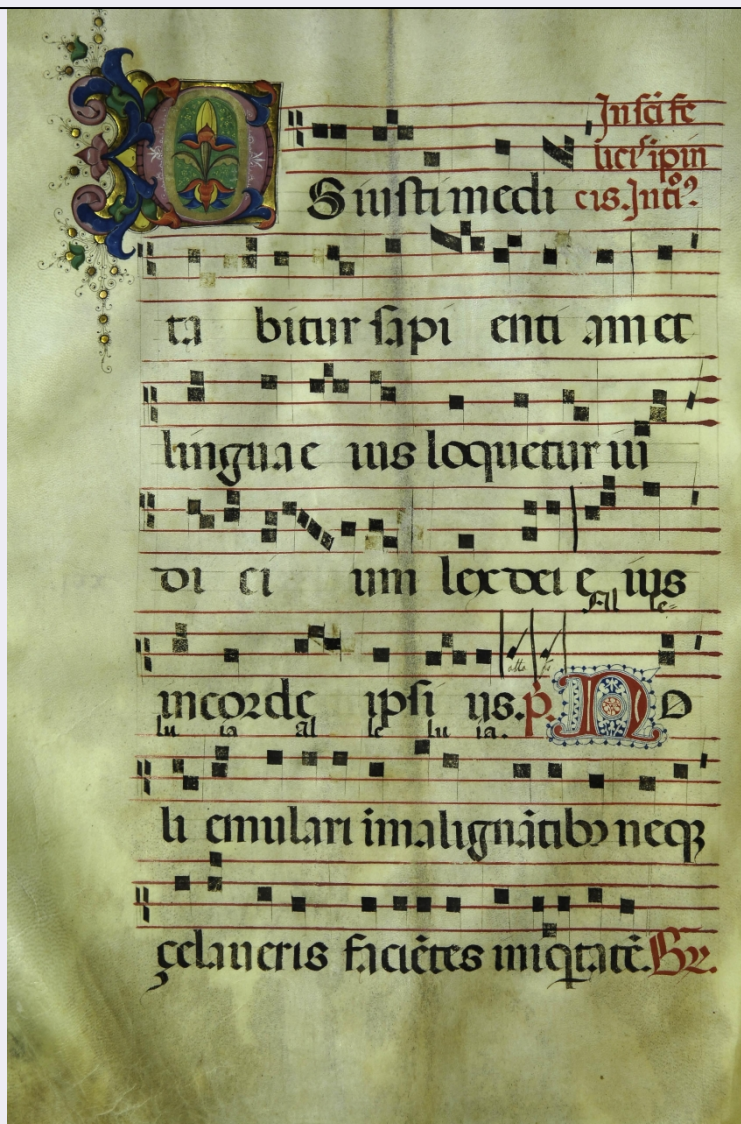 In scī fe
licꝭ ī pin
cis. Intꝰ
OS iusti medi
ta bitur sapi enti am et
lingua e ius loquetur iu
di ci um lex dei e ius
Al le=
in corde ipsi us. p. No
lu ia al le lu ia.
li emulari i malignātibꝰ neqꝫ
zelaueris faciētes iniqtatē. Gr.